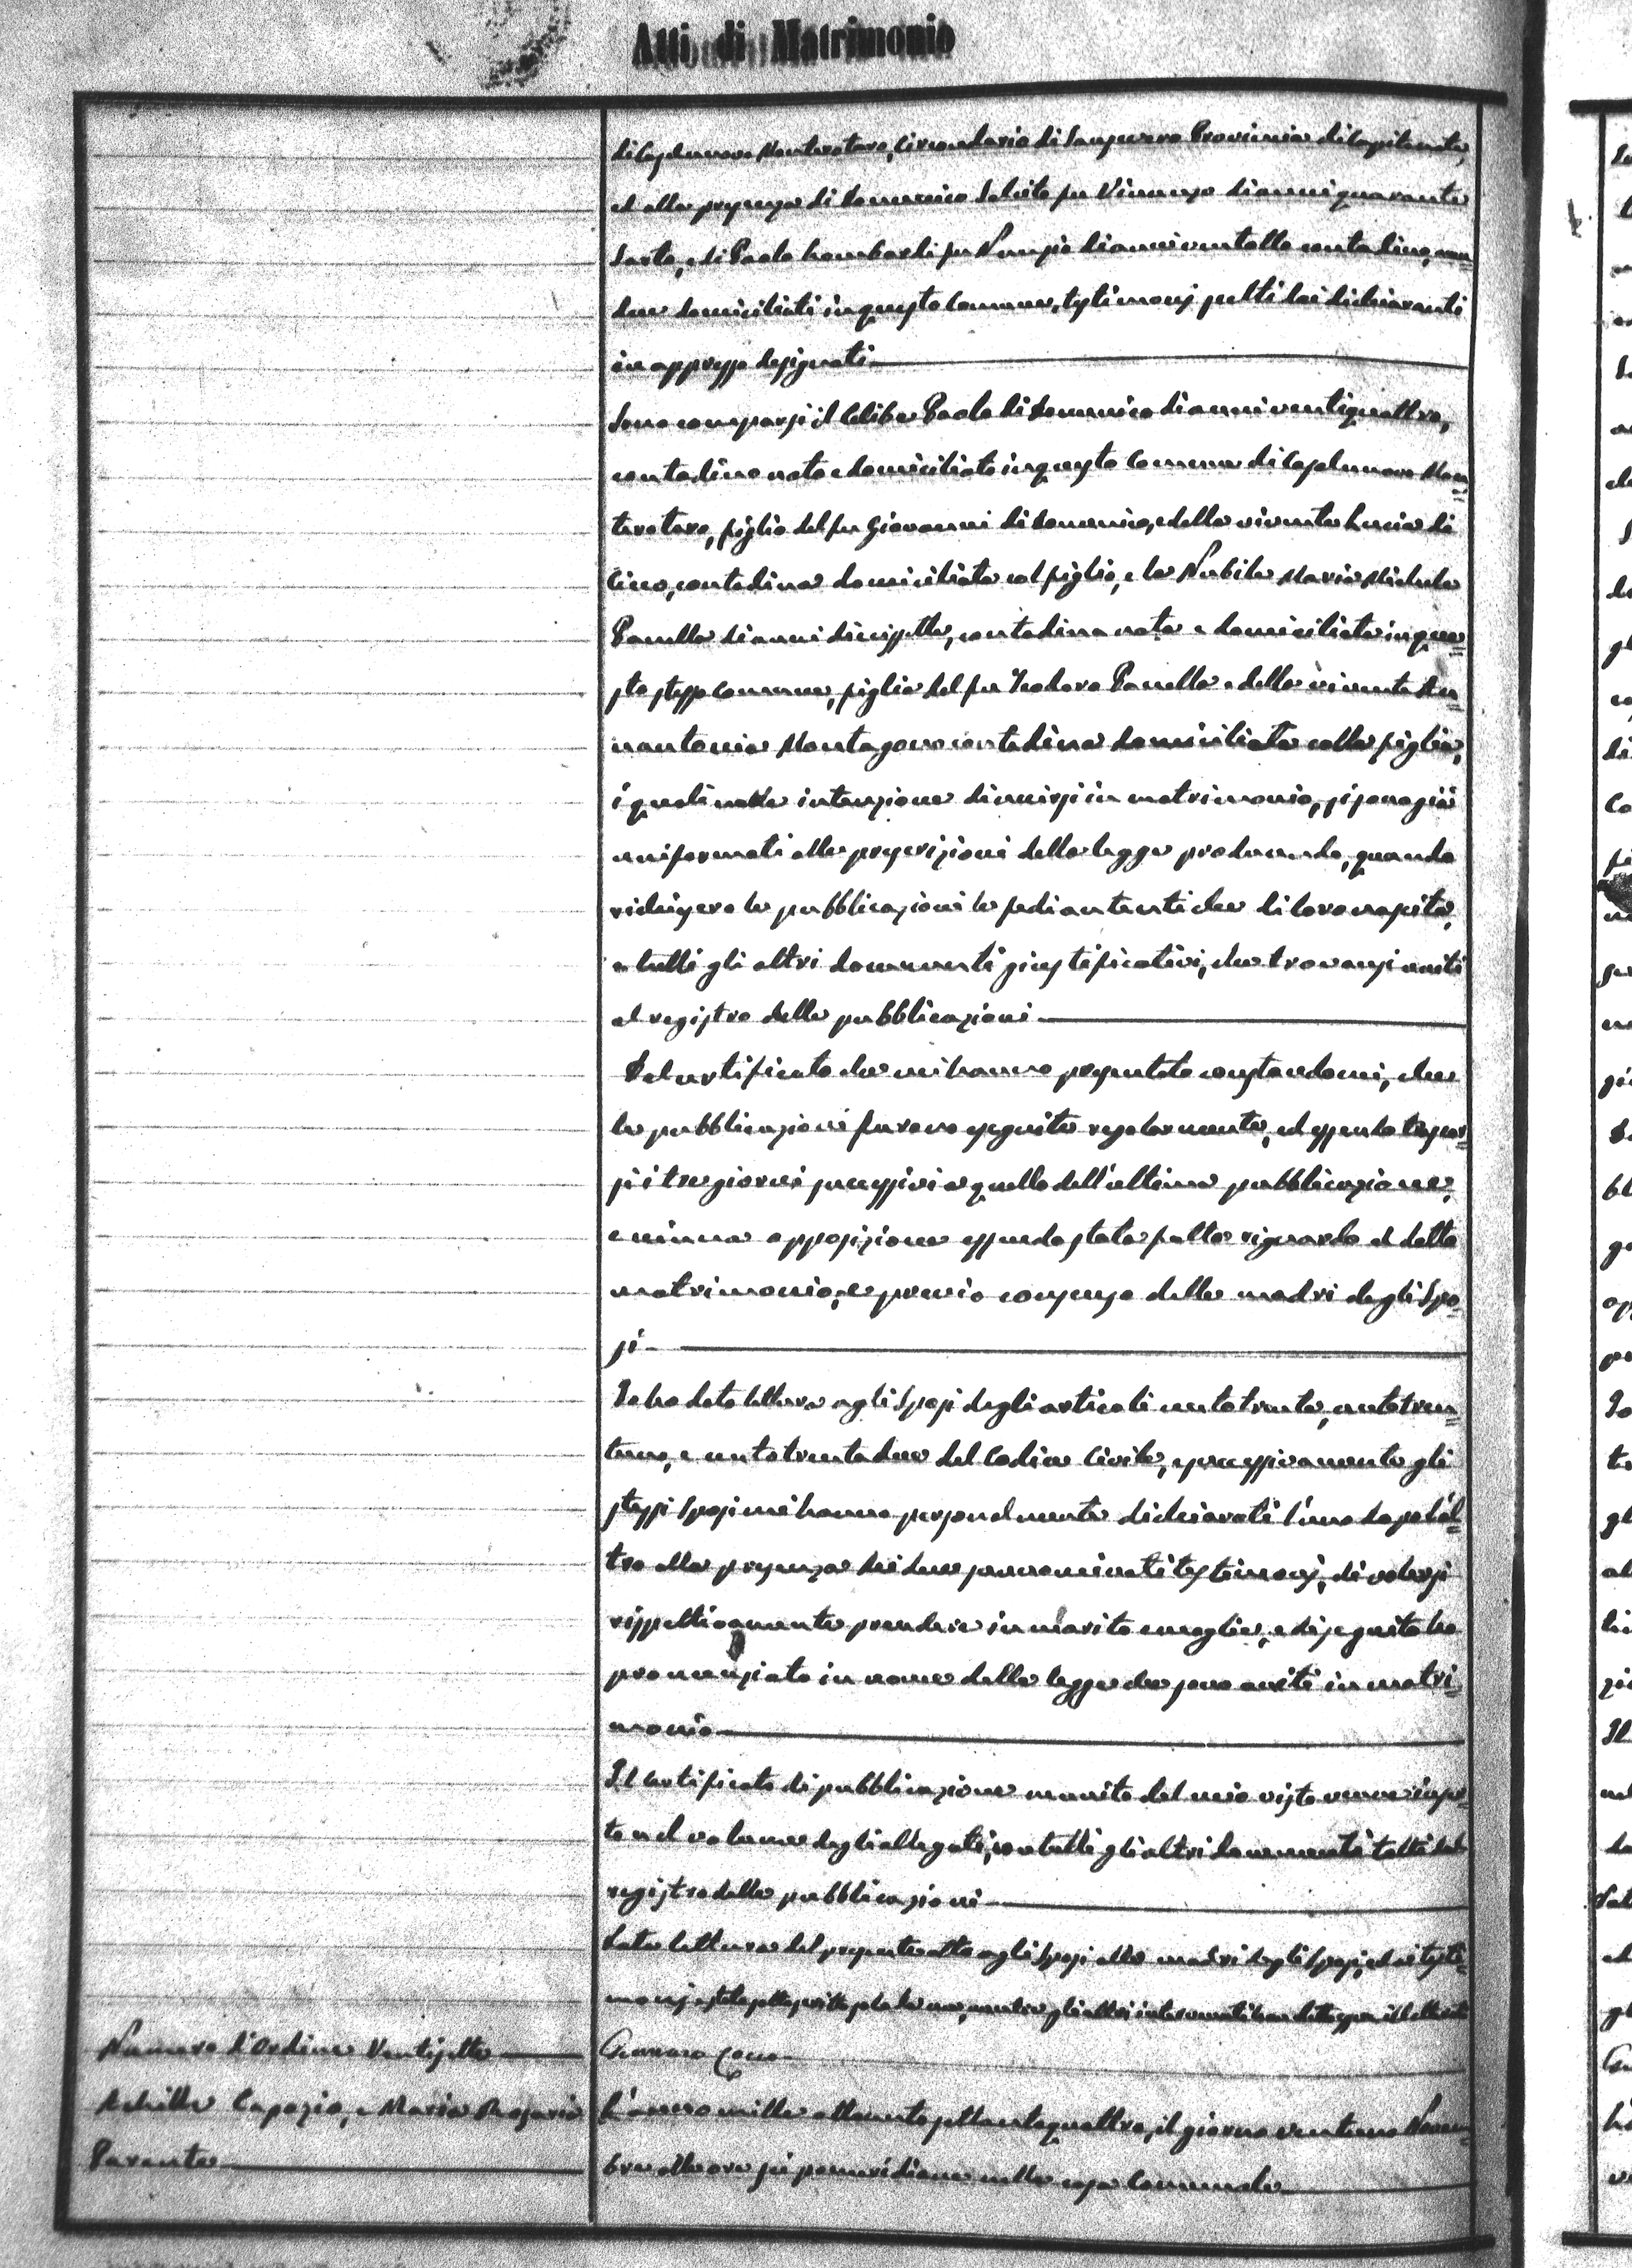 Atti di Matrimonio
di Casalnuovo Monterotaro, Circondario di Sansevero Provincia di Capitanata,
ed alla presenza di Domenico Salcito fu Vincenzo di anni quaranta
Sarto, e di Paolo Lombardi fu Nunzio di anni ventotto contadino, am=
due domiciliati in questo Comune, testimonj scelti dai dichiaranti
in appresso designati
Sono comparsi il Celibe Paolo di Domenico di anni ventiquattro,
contadino nato e domiciliato in questo Comune di Casalnuovo Mon=
terotaro, figlio del fu Giovanni di Domenico, e della vivente Lucia di
Cicco, contadina domiciliata col figlio, e la Nubile Maria Michela
Panella di anni diciassette, contadina nata e domiciliata in que=
sto stesso Comune, figlia del fu Teodoro Panella e della vivente An=
nantonia Montagano contadina domiciliata colla figlia,
i quali nella intenzione di unirsi in matrimonio, si sono già
uniformati alle prescrizioni della legge producendo, quando
richiesero le pubblicazioni le fedi autentiche di loro nascita,
e tutti gli altri documenti giustificativi, che trovansi uniti
al registro delle pubblicazioni
Dal certificato che mi hanno presentato constandomi, che
le pubblicazioni furono eseguite regolarmente, ed essendo trascor=
si i tre giorni successivi a quello dell'ultima pubblicazione,
e niuna opposizione essendo stata fatta riguardo al detto
matrimonio, e previo consenso delle madri degli Spo=
si
Io ho dato lettura agli Sposi degli articoli centotrenta, centotren=
tuno, e centotrentadue del Codice Civile, e successivamente gli
stessi Sposi mi hanno personalmente dichiarato l'uno dopo l'al=
tro alla presenza dei due prenominati testimonj, di volersi
rispettivamente prendere in marito e moglie, e di seguito ho
pronunziato in nome della legge che sono uniti in matri=
monio
Il Certificato di pubblicazione munito del mio visto venne inser=
to nel volume degli allegati, con tutti gli altri documenti tolti dal
registro delle pubblicazioni
Data lettura del presente atto agli Sposi alle madri degli Sposi, ed ai testi=
monj è stato sottoscritto da me, mentre gli altri intervenuti han detto
Gennaro Cocco
Numero d'Ordine Ventisette
Achille Capozio, e Maria Rosaria
Parente
L'anno mille ottocentosettantaquattro, il giorno ventuno Novem=
bre alle ore sei pomeridiane nella casa Comunale